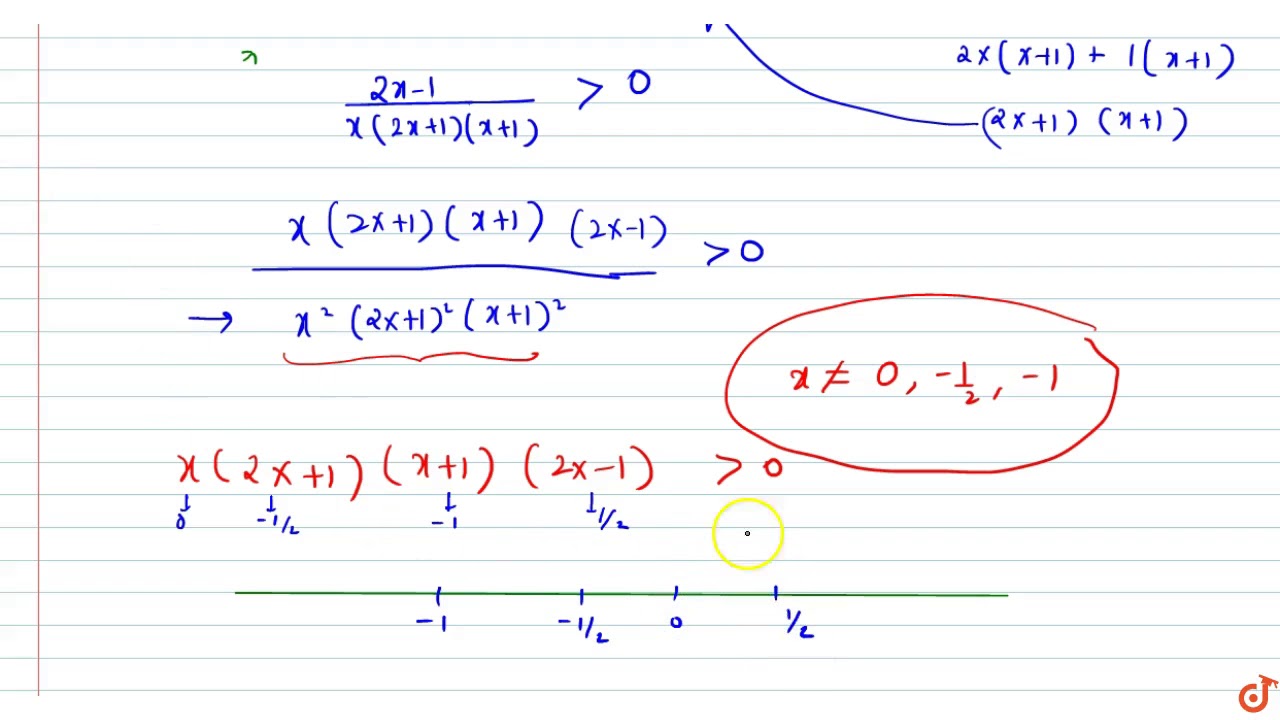 x
2x(x+1) + 1(x+1)
2x-1 / x(2x+1)(x+1) > 0
(2x+1) (x+1)
x(2x+1)(x+1) (2x-1) / x²(2x+1)²(x+1)² > 0
→
x ≠ 0, -1/2, -1
x(2x+1)(x+1)(2x-1) > 0
↓ 0 ↓ -1/2 ↓ -1 ↓ 1/2
-1 -1/2 0 1/2